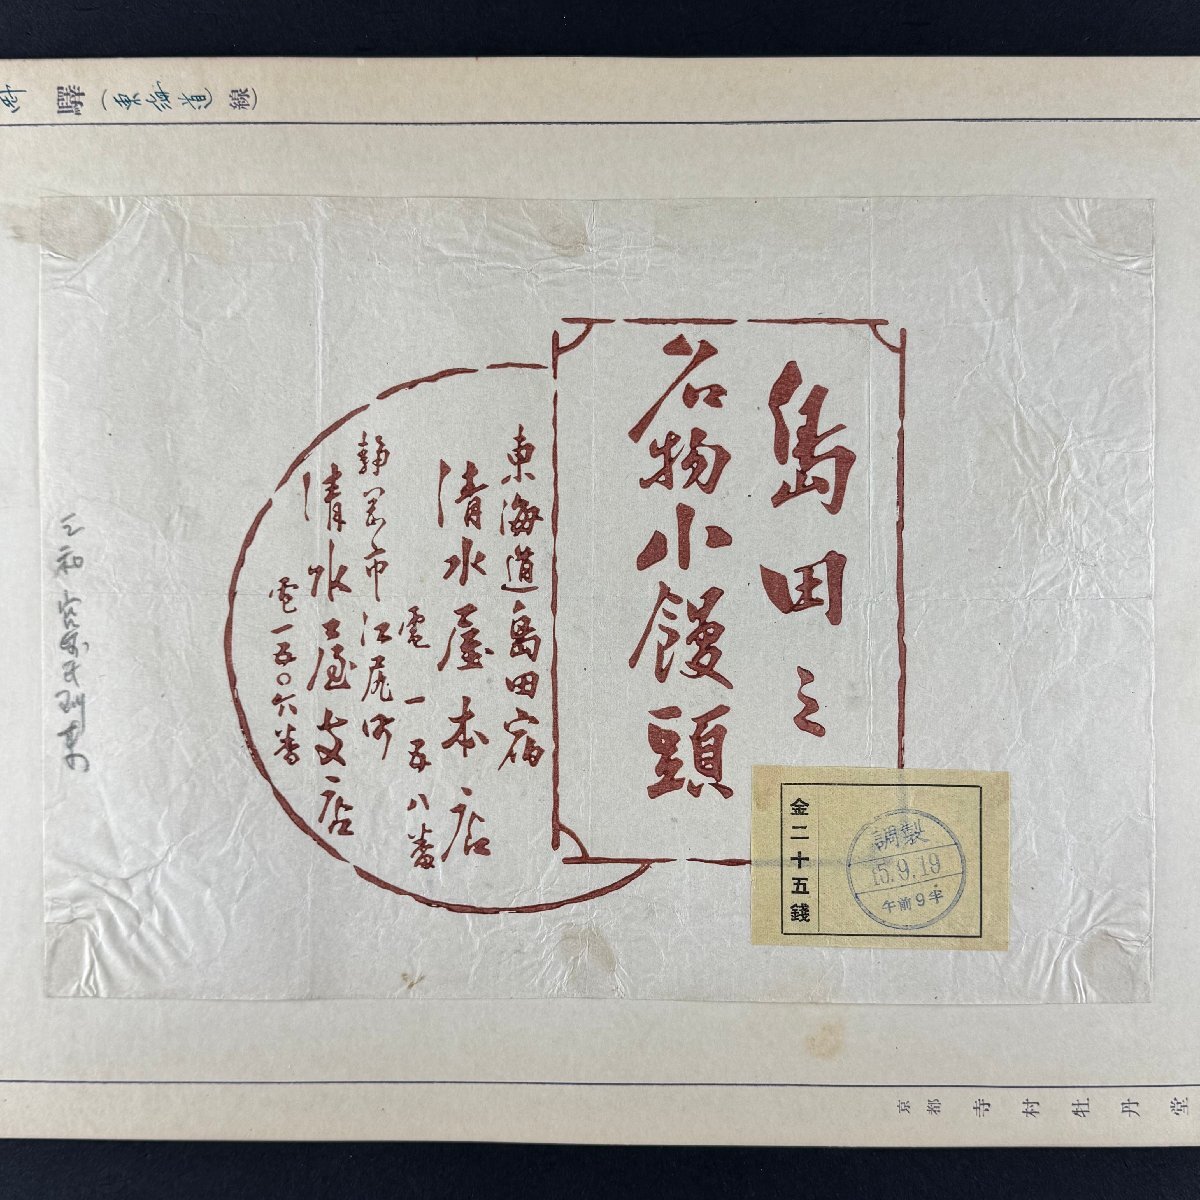 驛(東海道線)
島田之
名物小饅頭
東海道島田宿
清水屋本店
電一五八番
静岡市江尻町
清水屋支店
電一五〇六番
金二十五錢
調製
15.9.19
午前9半
京都 寺村牡丹堂